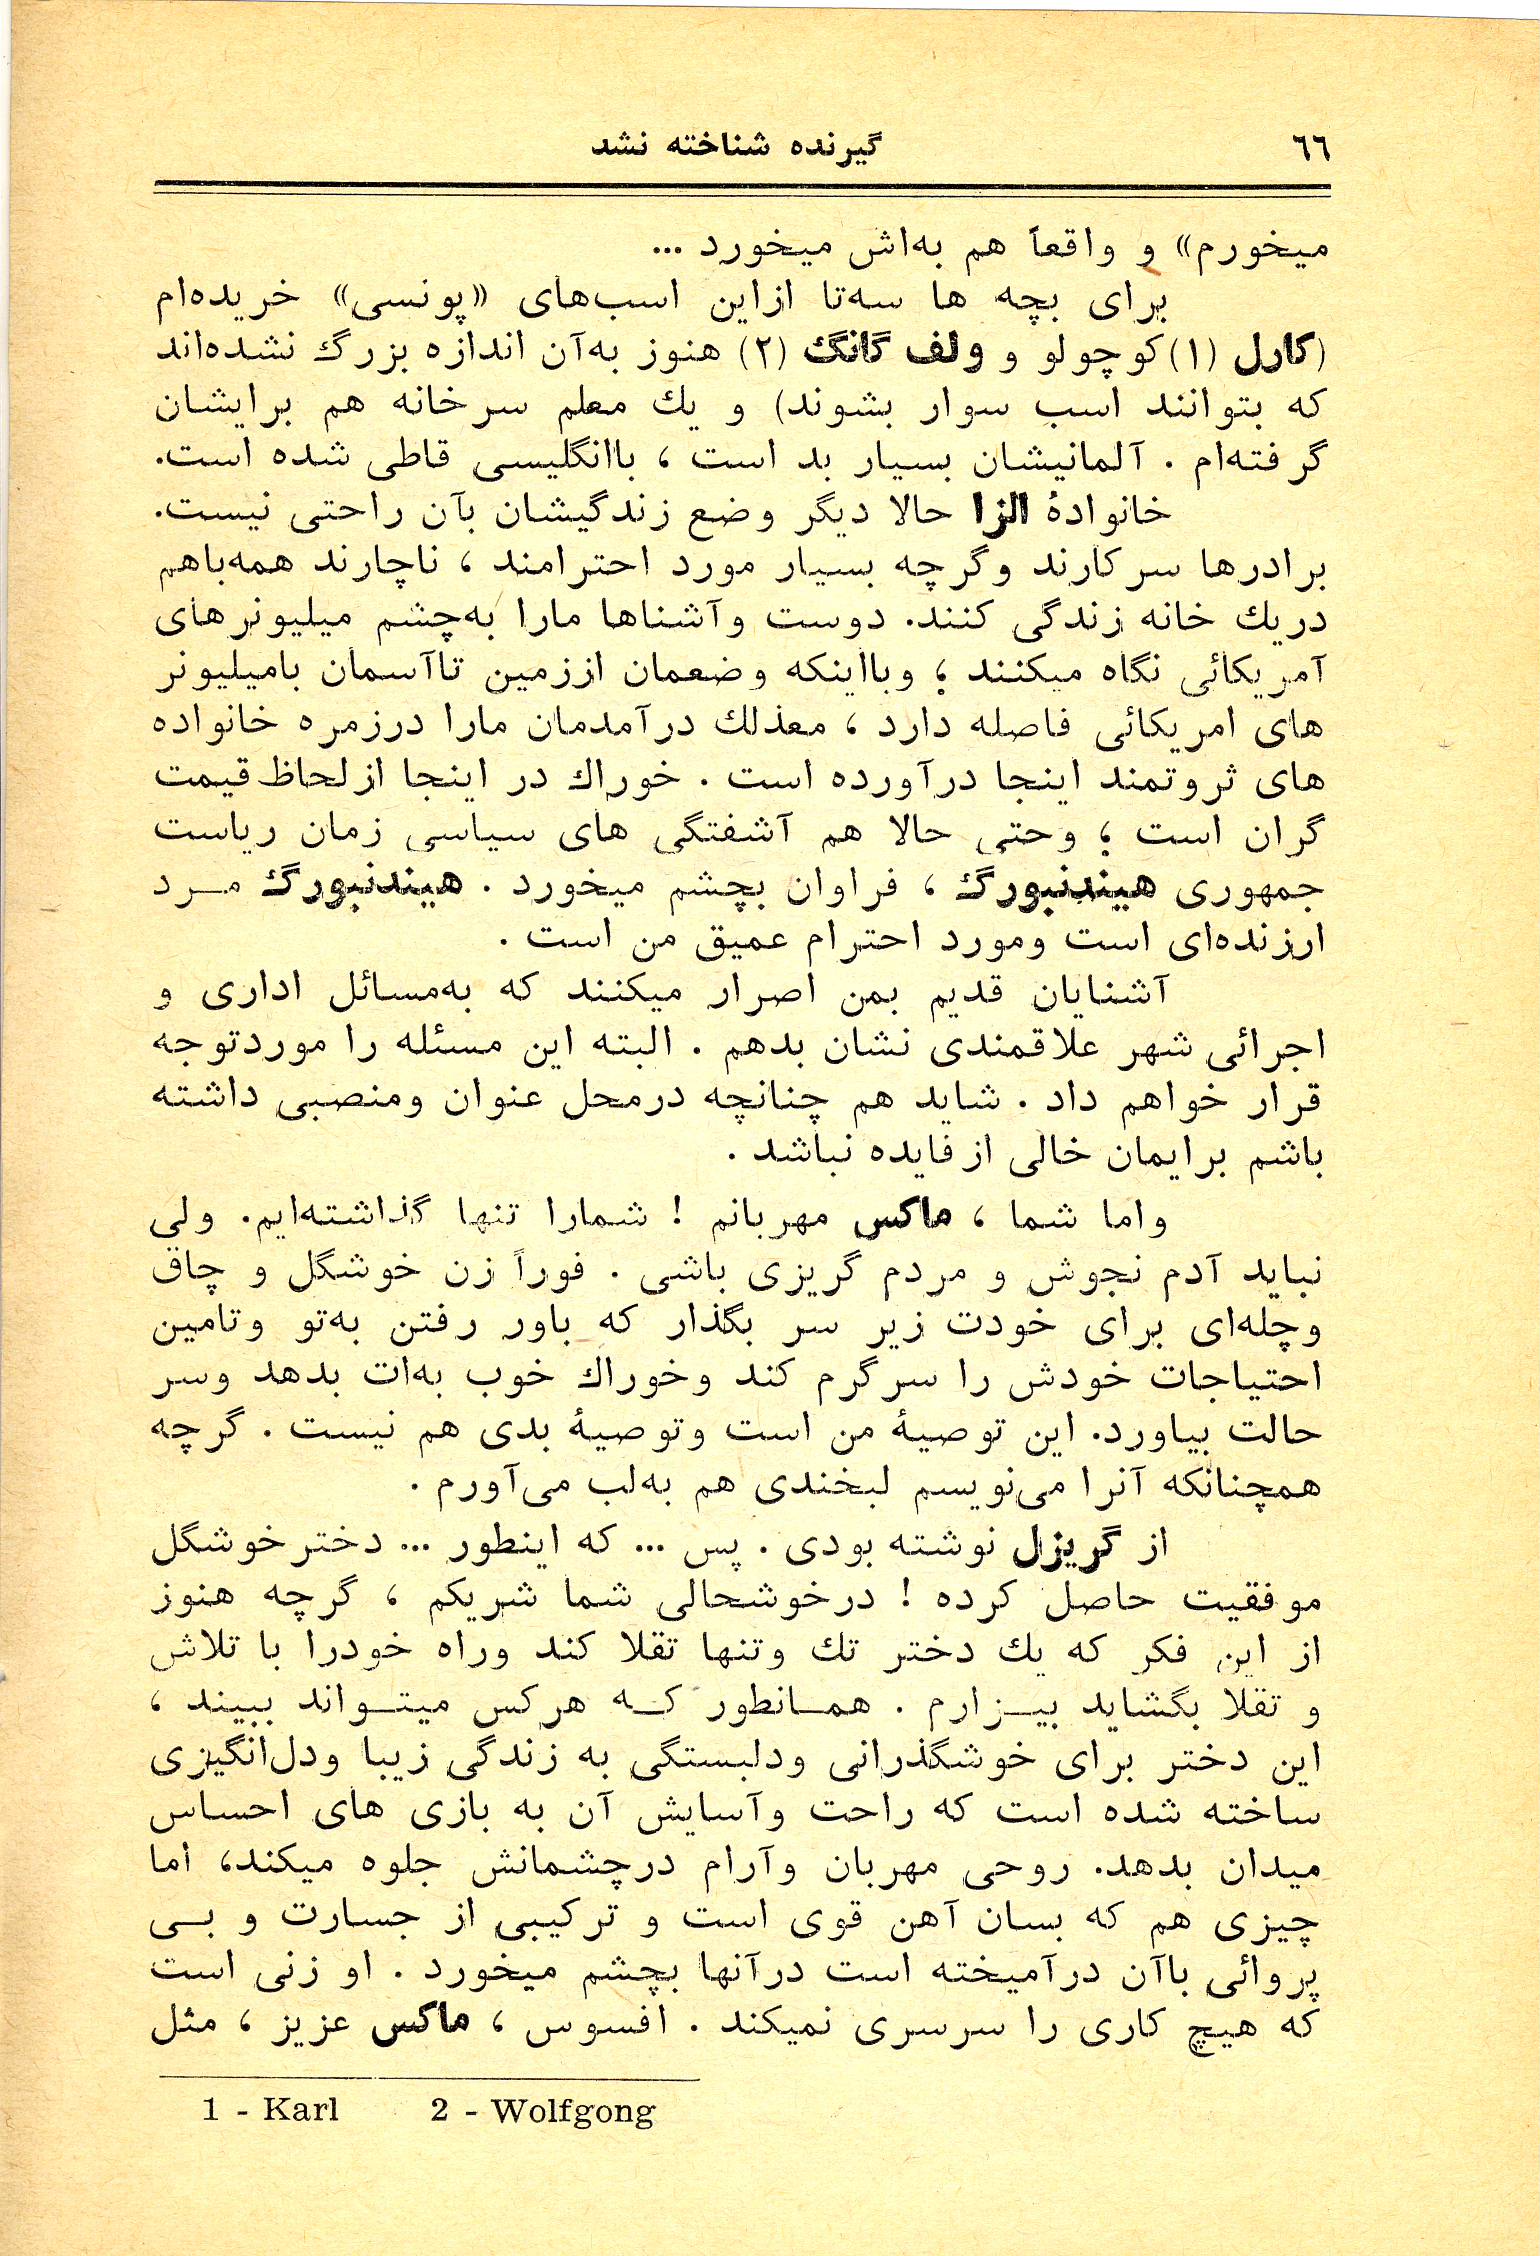 ٦٦
گیرنده شناخته نشد
میخورم» و واقعاً هم به‌اش میخورد ...
برای بچه ها سه‌تا ازاین اسب‌های «پونسی» خریده‌ام
(کارل (۱)کوچولو و ولف گانگ (۲) هنوز به‌آن اندازه بزرگ نشده‌اند
که بتوانند اسب سوار بشوند) و یك معلم سرخانه هم برایشان
گرفته‌ام . آلمانیشان بسیار بد است ، باانگلیسی قاطی شده است.
خانوادهٔ الزا حالا دیگر وضع زندگیشان بآن راحتی نیست.
برادرها سرکارند وگرچه بسیار مورد احترامند ، ناچارند همه‌باهم
دریك خانه زندگی کنند. دوست وآشناها مارا به‌چشم میلیونرهای
آمریکائی نگاه میکنند ؛ وبااینکه وضعمان اززمین تاآسمان بامیلیونر
های امریکائی فاصله دارد ، معذلك درآمدمان مارا درزمره خانواده
های ثروتمند اینجا درآورده است . خوراك در اینجا ازلحاظ قیمت
گران است ؛ وحتی حالا هم آشفتگی های سیاسی زمان ریاست
جمهوری هیندنبورگ ، فراوان بچشم میخورد . هیندنبورگ مـرد
ارزنده‌ای است ومورد احترام عمیق من است .
آشنایان قدیم بمن اصرار میکنند که به‌مسائل اداری و
اجرائی شهر علاقمندی نشان بدهم . البته این مسئله را موردتوجه
قرار خواهم داد . شاید هم چنانچه درمحل عنوان ومنصبی داشته
باشم برایمان خالی ازفایده نباشد .
واما شما ، ماکس مهربانم ! شمارا تنها گذاشته‌ایم. ولی
نباید آدم نجوش و مردم گریزی باشی . فوراً زن خوشگل و چاق
وچله‌ای برای خودت زیر سر بگذار که باور رفتن به‌تو وتامین
احتیاجات خودش را سرگرم کند وخوراك خوب به‌ات بدهد وسر
حالت بیاورد. این توصیهٔ من است وتوصیهٔ بدی هم نیست . گرچه
همچنانکه آنرا می‌نویسم لبخندی هم به‌لب می‌آورم .
از گریزل نوشته بودی . پس ... که اینطور ... دخترخوشگل
موفقیت حاصل کرده ! درخوشحالی شما شریکم ، گرچه هنوز
از این فکر که یك دختر تك وتنها تقلا کند وراه خودرا با تلاش
و تقلا بگشاید بیـزارم . همـانطور کـه هرکس میتـواند ببیند ،
این دختر برای خوشگذرانی ودلبستگی به زندگی زیبا ودل‌انگیزی
ساخته شده است که راحت وآسایش آن به بازی های احساس
میدان بدهد. روحی مهربان وآرام درچشمانش جلوه میکند، اما
چیزی هم که بسان آهن قوی است و ترکیبی از جسارت و بـی
پروائی باآن درآمیخته است درآنها بچشم میخورد . او زنی است
که هیچ کاری را سرسری نمیکند . افسوس ، ماکس عزیز ، مثل
1 - Karl 2 - Wolfgong